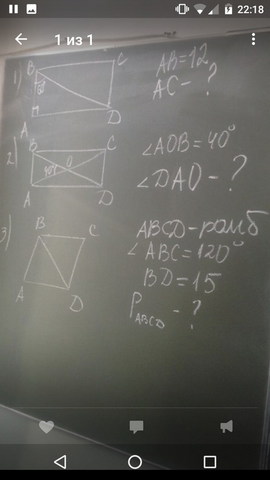 22:18
1 из 1
1)
B
C
A
D
AB=12
AC-?
2)
B
C
O
40°
A
D
∠AOB=40°
∠DAO-?
3)
B
C
A
D
ABCD-ромб
∠ABC=120°
BD=15
P_ABCD -?